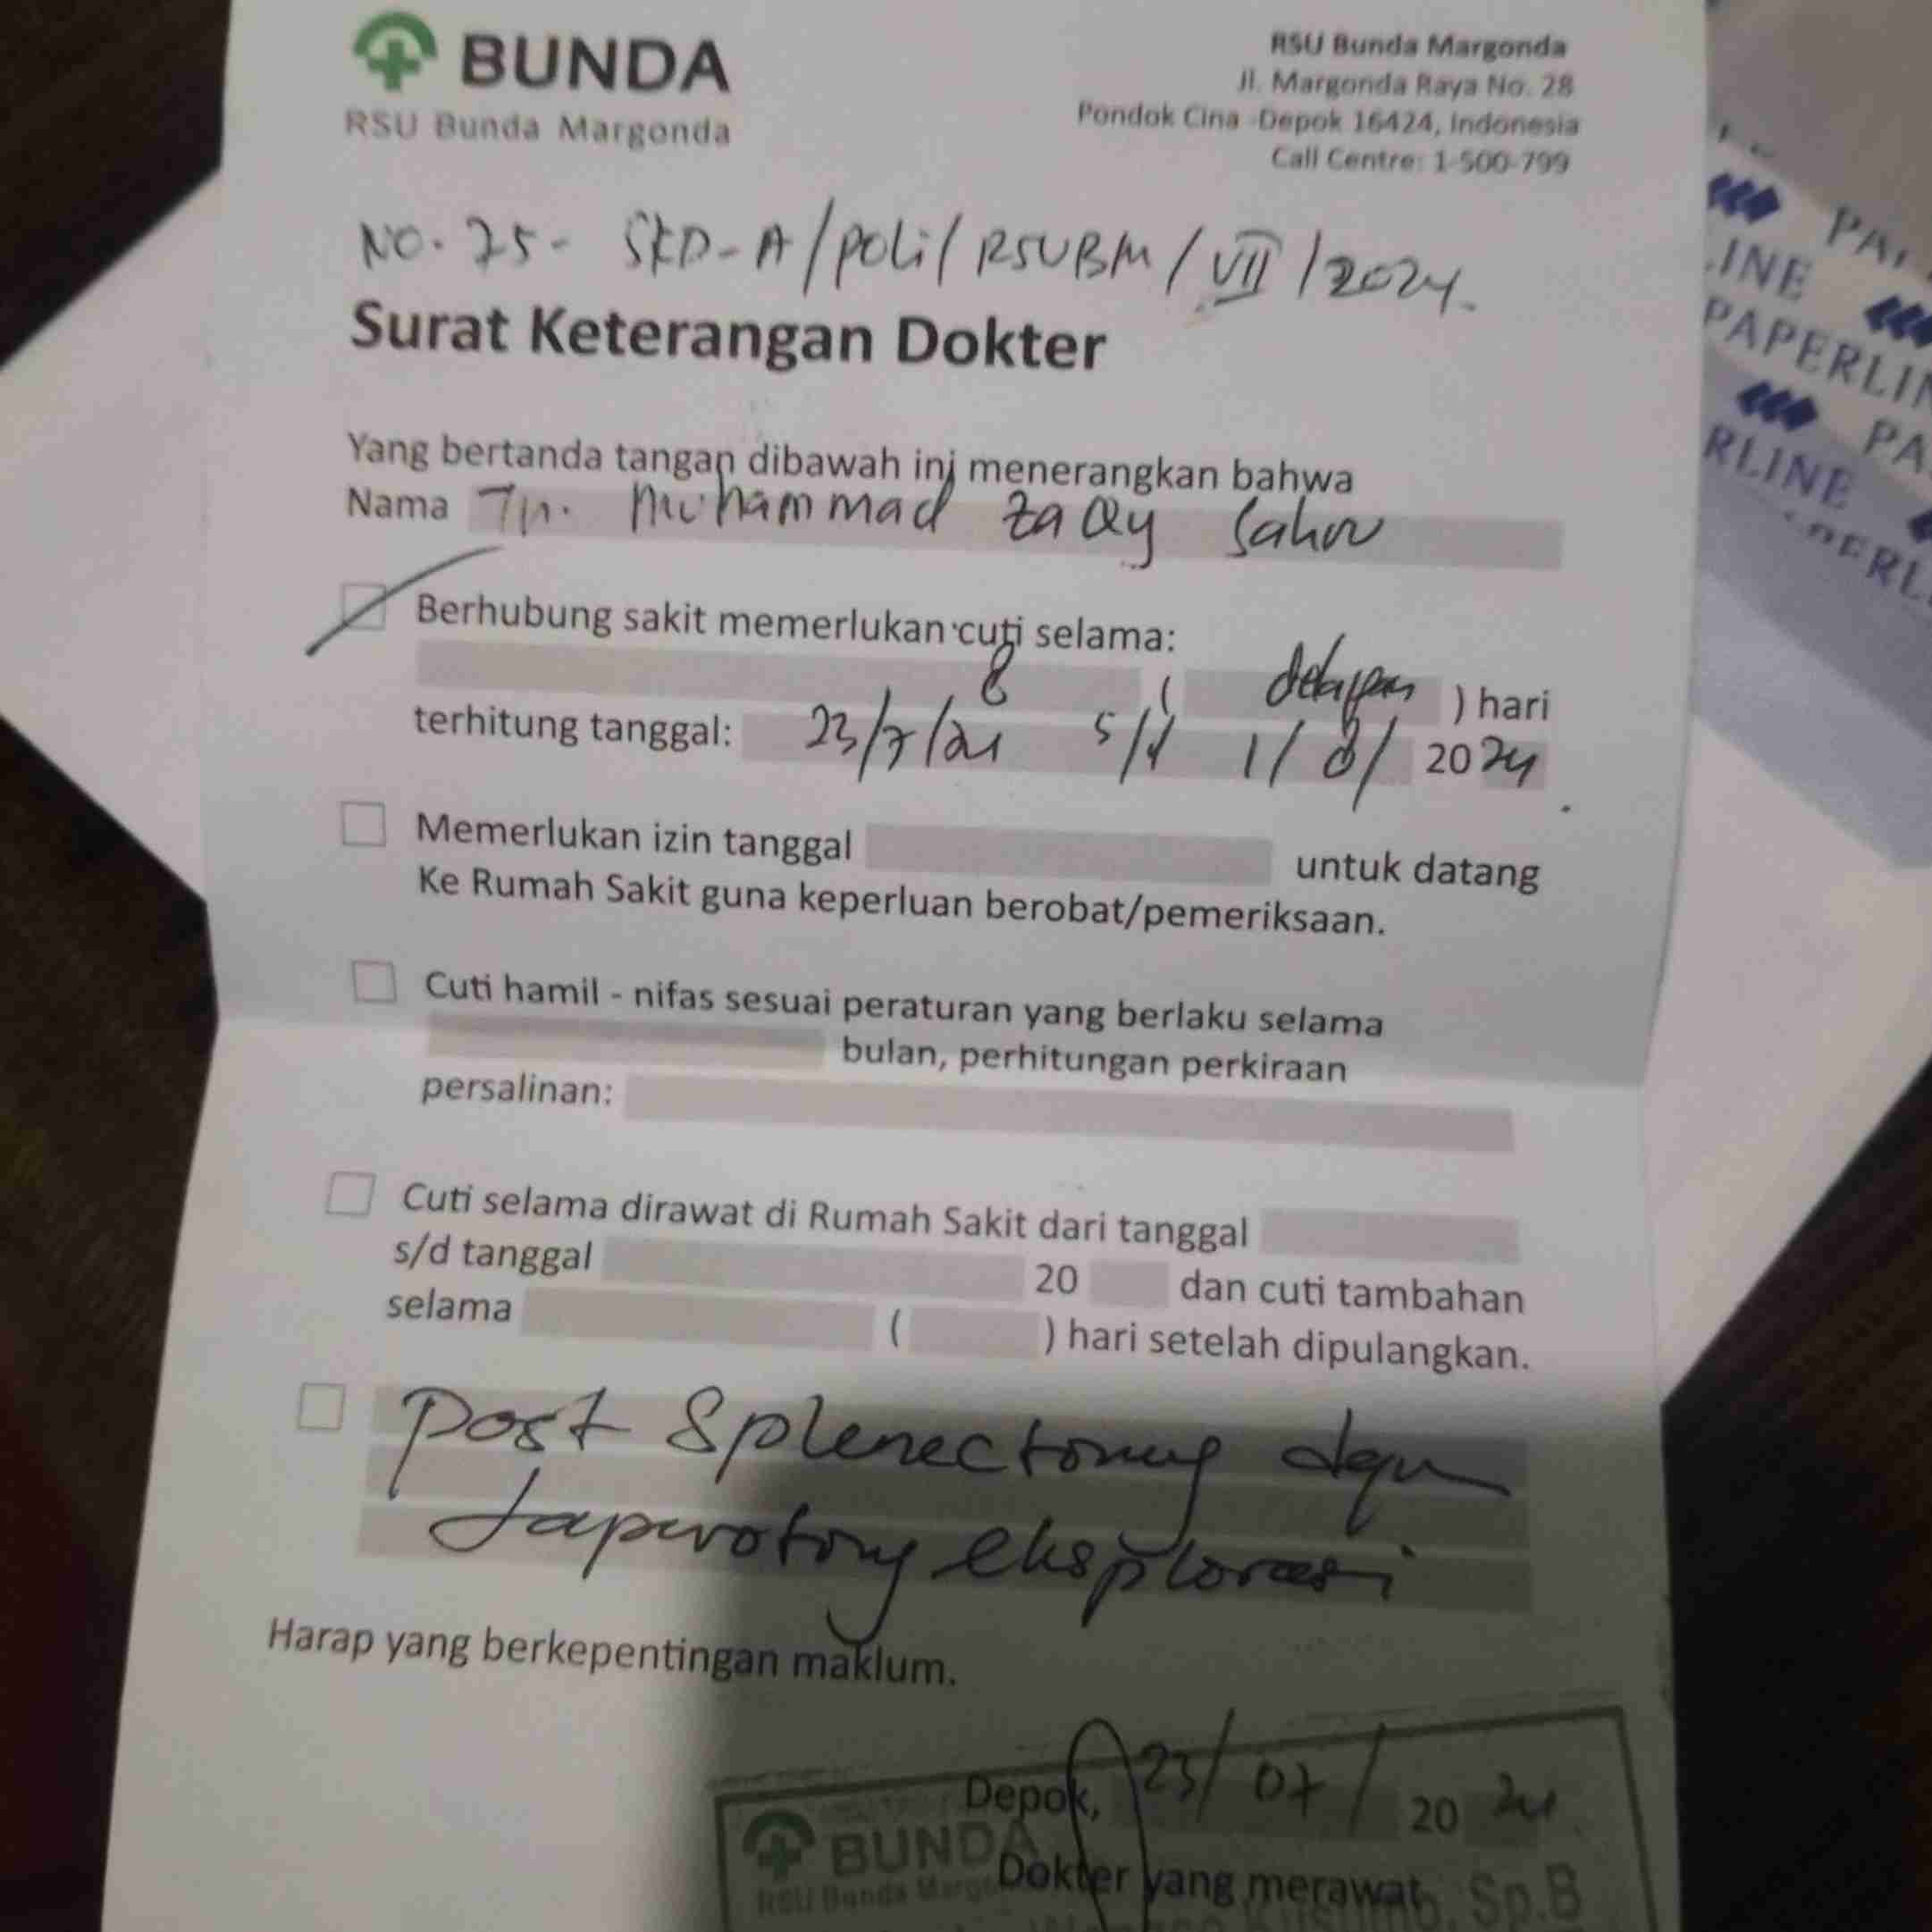 BUNDA
RSU Bunda Margonda
RSU Bunda Margonda
Jl. Margonda Raya No. 28
Pondok Cina -Depok 16424, Indonesia
Call Centre: 1-500-799
NO. 75- SKD-A/POLI/RSUBM/VII/2024.
Surat Keterangan Dokter
Yang bertanda tangan dibawah ini menerangkan bahwa
Nama Tn. Muhammad ZaQy
Berhubung sakit memerlukan cuti selama:
8 ( delapan ) hari
terhitung tanggal: 23/7/24 s/d 1/8/ 2024
Memerlukan izin tanggal untuk datang
Ke Rumah Sakit guna keperluan berobat/pemeriksaan.
Cuti hamil - nifas sesuai peraturan yang berlaku selama
bulan, perhitungan perkiraan
persalinan:
Cuti selama dirawat di Rumah Sakit dari tanggal
s/d tanggal 20 dan cuti tambahan
selama ( ) hari setelah dipulangkan.
Post Splenectomy
Laparotomy eksplorasi
Harap yang berkepentingan maklum.
Depok, 23/07/2024
BUNDA
Dokter yang merawat
RSU Bunda
Sp.B
PAPERLINE